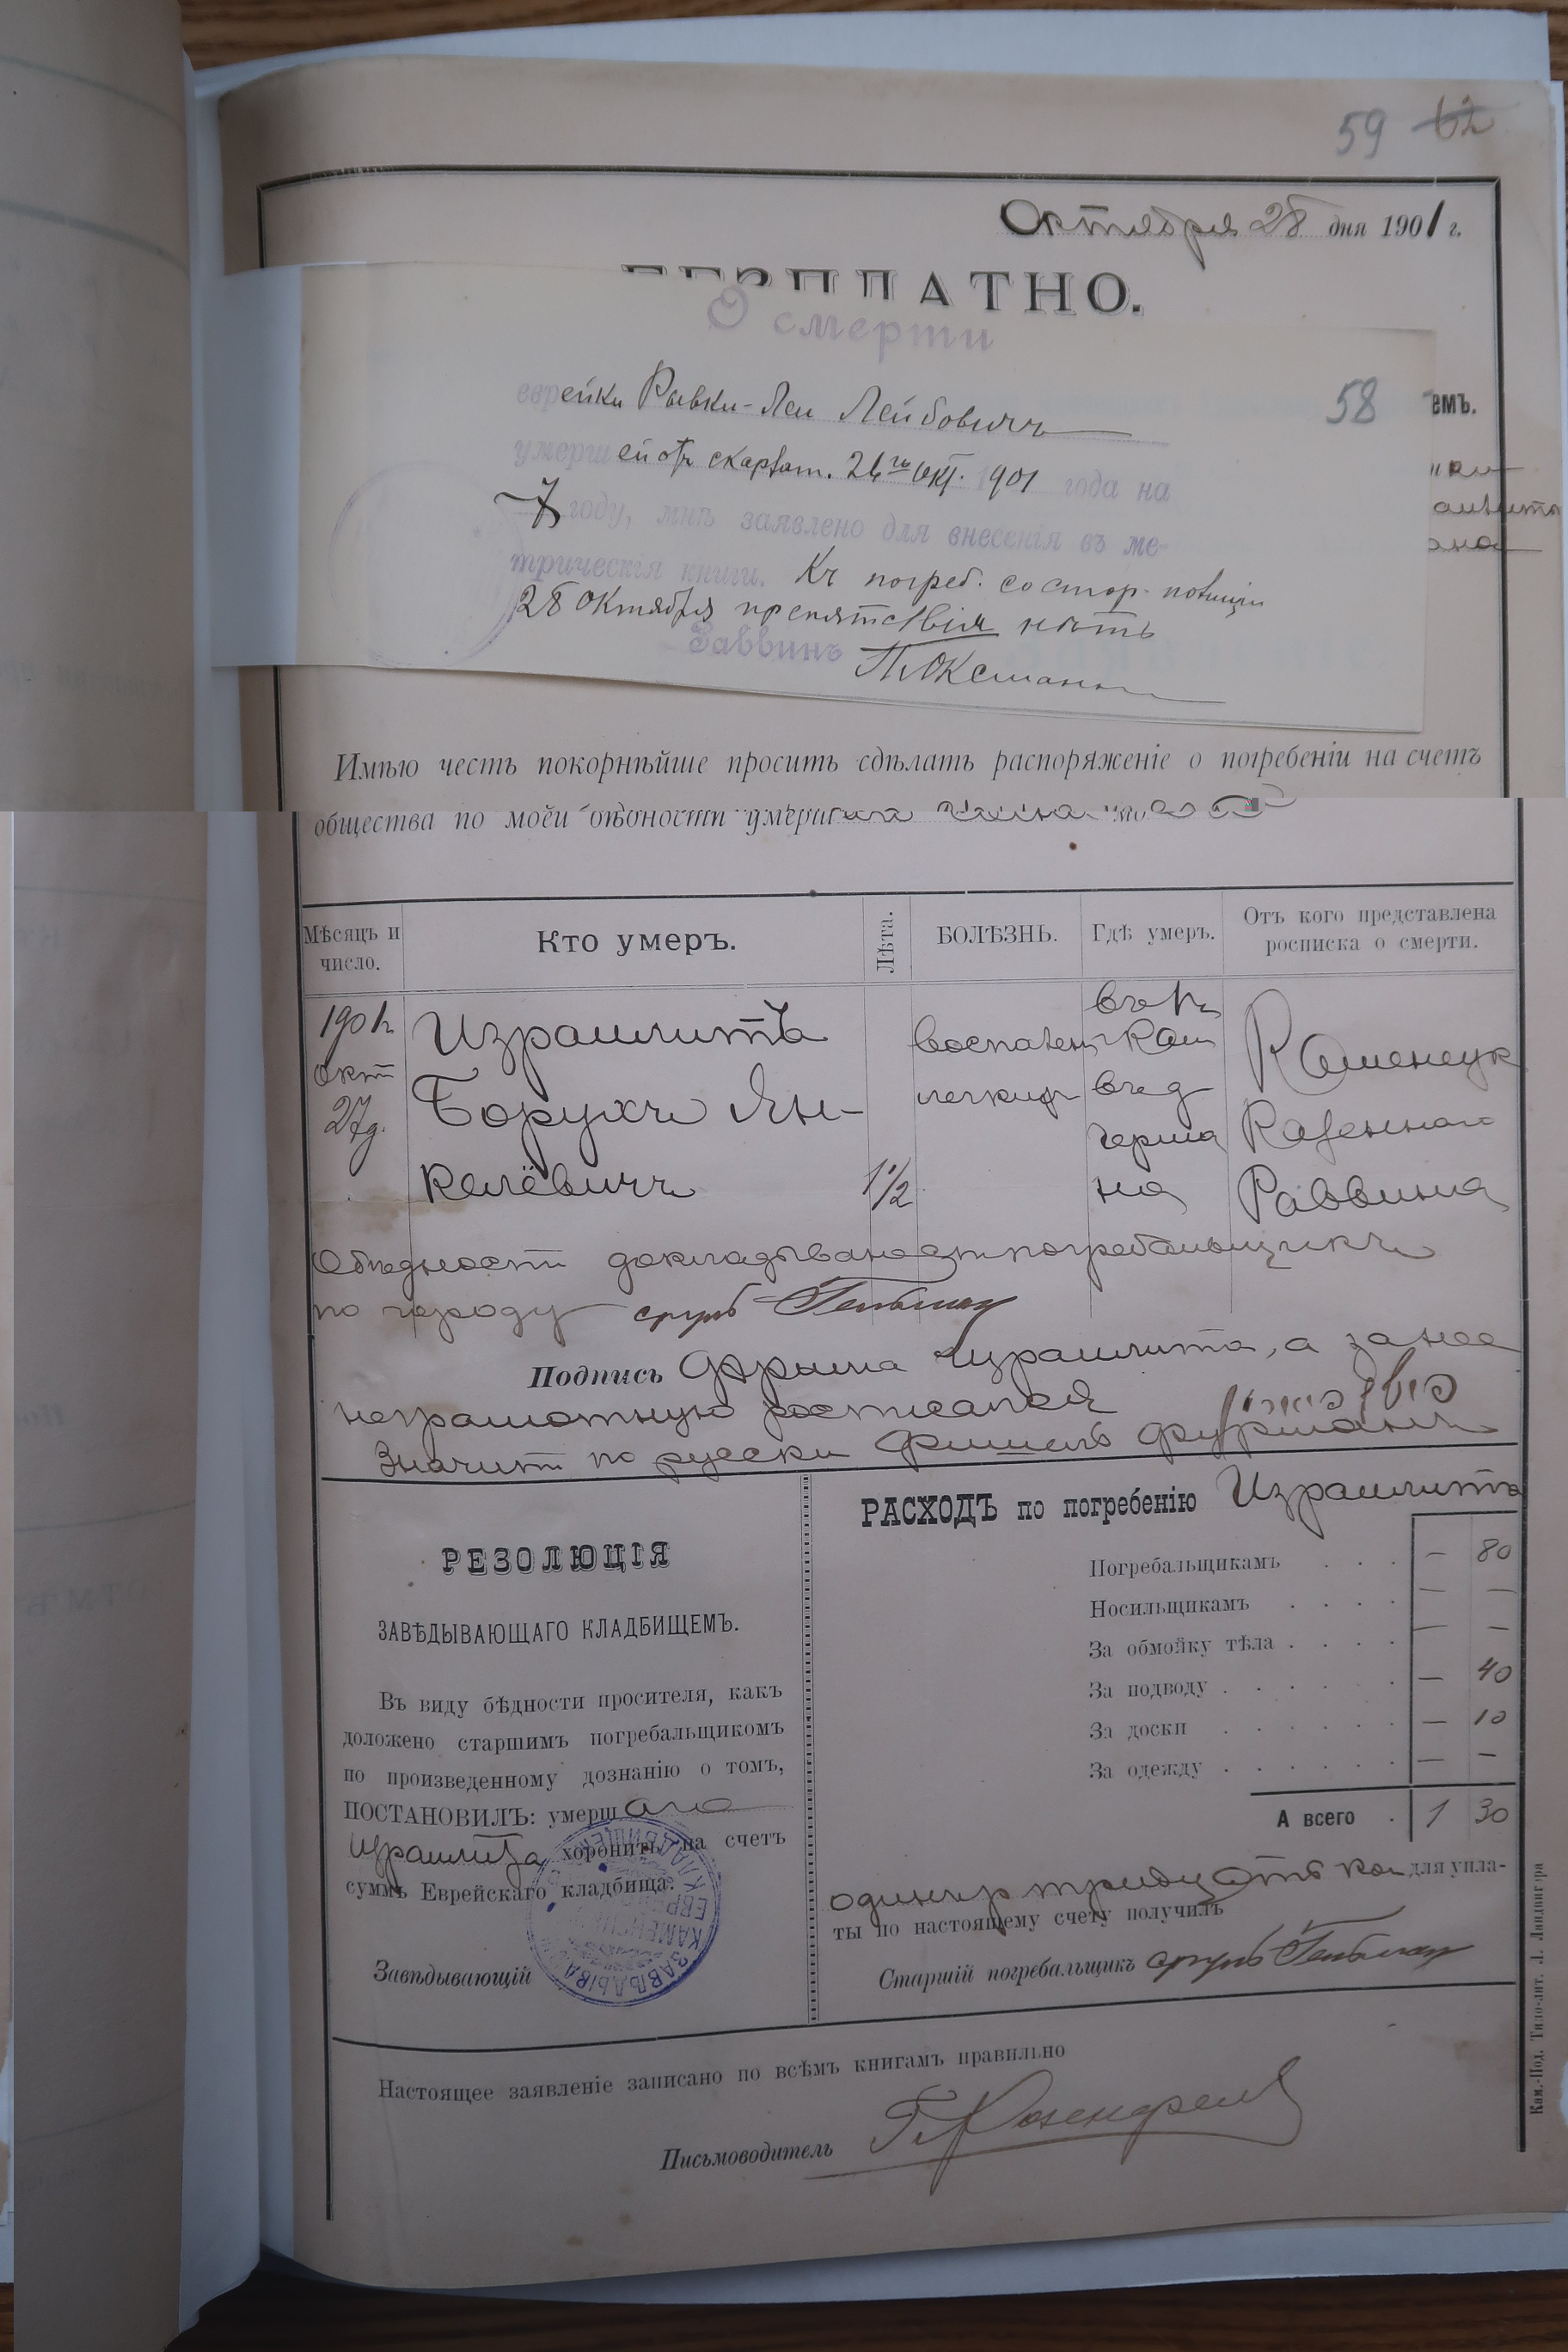 59 62
Октября 28 дня 1901 г.
БЕЗПЛАТНО.
О смерти
еврейки Рывки-Леи Лейбовичъ
58
емъ.
умершей отъ скарлат. 26го окт. 1901 года на
7 году, мнѣ заявлено для внесенія въ ме-
трическія книги. Къ погреб. со стор. полиціи
28 Октября препятствія нѣтъ
Раввинъ
Имѣю честь покорнѣйше просить сдѣлать распоряженіе о погребеніи на счетъ
общества по моей бѣдности умершаго
Мѣсяцъ и число.
Кто умеръ.
Лѣта.
БОЛѢЗНЬ.
Гдѣ умеръ.
Отъ кого представлена росписка о смерти.
1901г
окт
27д.
Израшлитъ
Борухъ Ян-
келёвичъ
1 1/2
воспален
легких
въ г.
Кам
въ д
Герша
на
Каменецк
Казеннаго
Раввина
О бѣдности докладываетъ погребальщикъ
по городу
Подпись Фрыма Израшлита, а за нее
неграмотную росписался
Значитъ по русски Фишель Фурманъ
РЕЗОЛЮЦІЯ
ЗАВѢДЫВАЮЩАГО КЛАДБИЩЕМЪ.
Въ виду бѣдности просителя, какъ
доложено старшимъ погребальщикомъ
по произведенному дознанію о томъ,
ПОСТАНОВИЛЪ: умершаго
Израшлита хоронить на счетъ
суммъ Еврейскаго кладбища.
Завѣдывающій
РАСХОДЪ по погребенію Израшлита
Погребальщикамъ . . . — 80
Носильщикамъ . . . . — —
За обмойку тѣла . . . . — —
За подводу . . . . . . — 40
За доски . . . . . . — 10
За одежду . . . . . . — —
А всего . 1 30
один р тридцать коп для упла-
ты по настоящему счету получилъ
Старшій погребальщикъ
Настоящее заявленіе записано по всѣмъ книгамъ правильно
Письмоводитель Г. Розенфель
Кам.-Под. Типо-лит. Л. Ландвигера